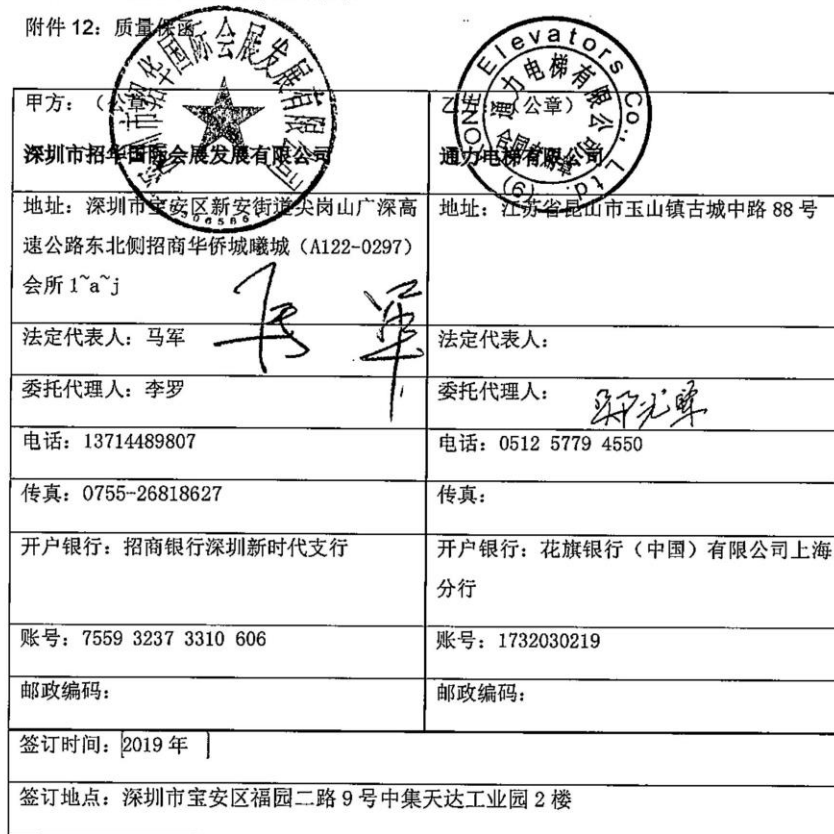 附件 12：质量保函
甲方：（公章）
深圳市招华国际会展发展有限公司
乙方：（公章）
通力电梯有限公司
地址：深圳市宝安区新安街道尖岗山广深高
速公路东北侧招商华侨城曦城（A122-0297）
会所 1~a~j
地址：江苏省昆山市玉山镇古城中路 88 号
法定代表人：马军
马军
法定代表人：
委托代理人：李罗
委托代理人：
电话：13714489807
电话：0512 5779 4550
传真：0755-26818627
传真：
开户银行：招商银行深圳新时代支行
开户银行：花旗银行（中国）有限公司上海
分行
账号：7559 3237 3310 606
账号：1732030219
邮政编码：
邮政编码：
签订时间：2019 年
签订地点：深圳市宝安区福园二路 9 号中集天达工业园 2 楼
深圳市招华国际会展发展有限公司
KONE Elevators Co., Ltd.
通力电梯有限公司
合同专用章
(9)